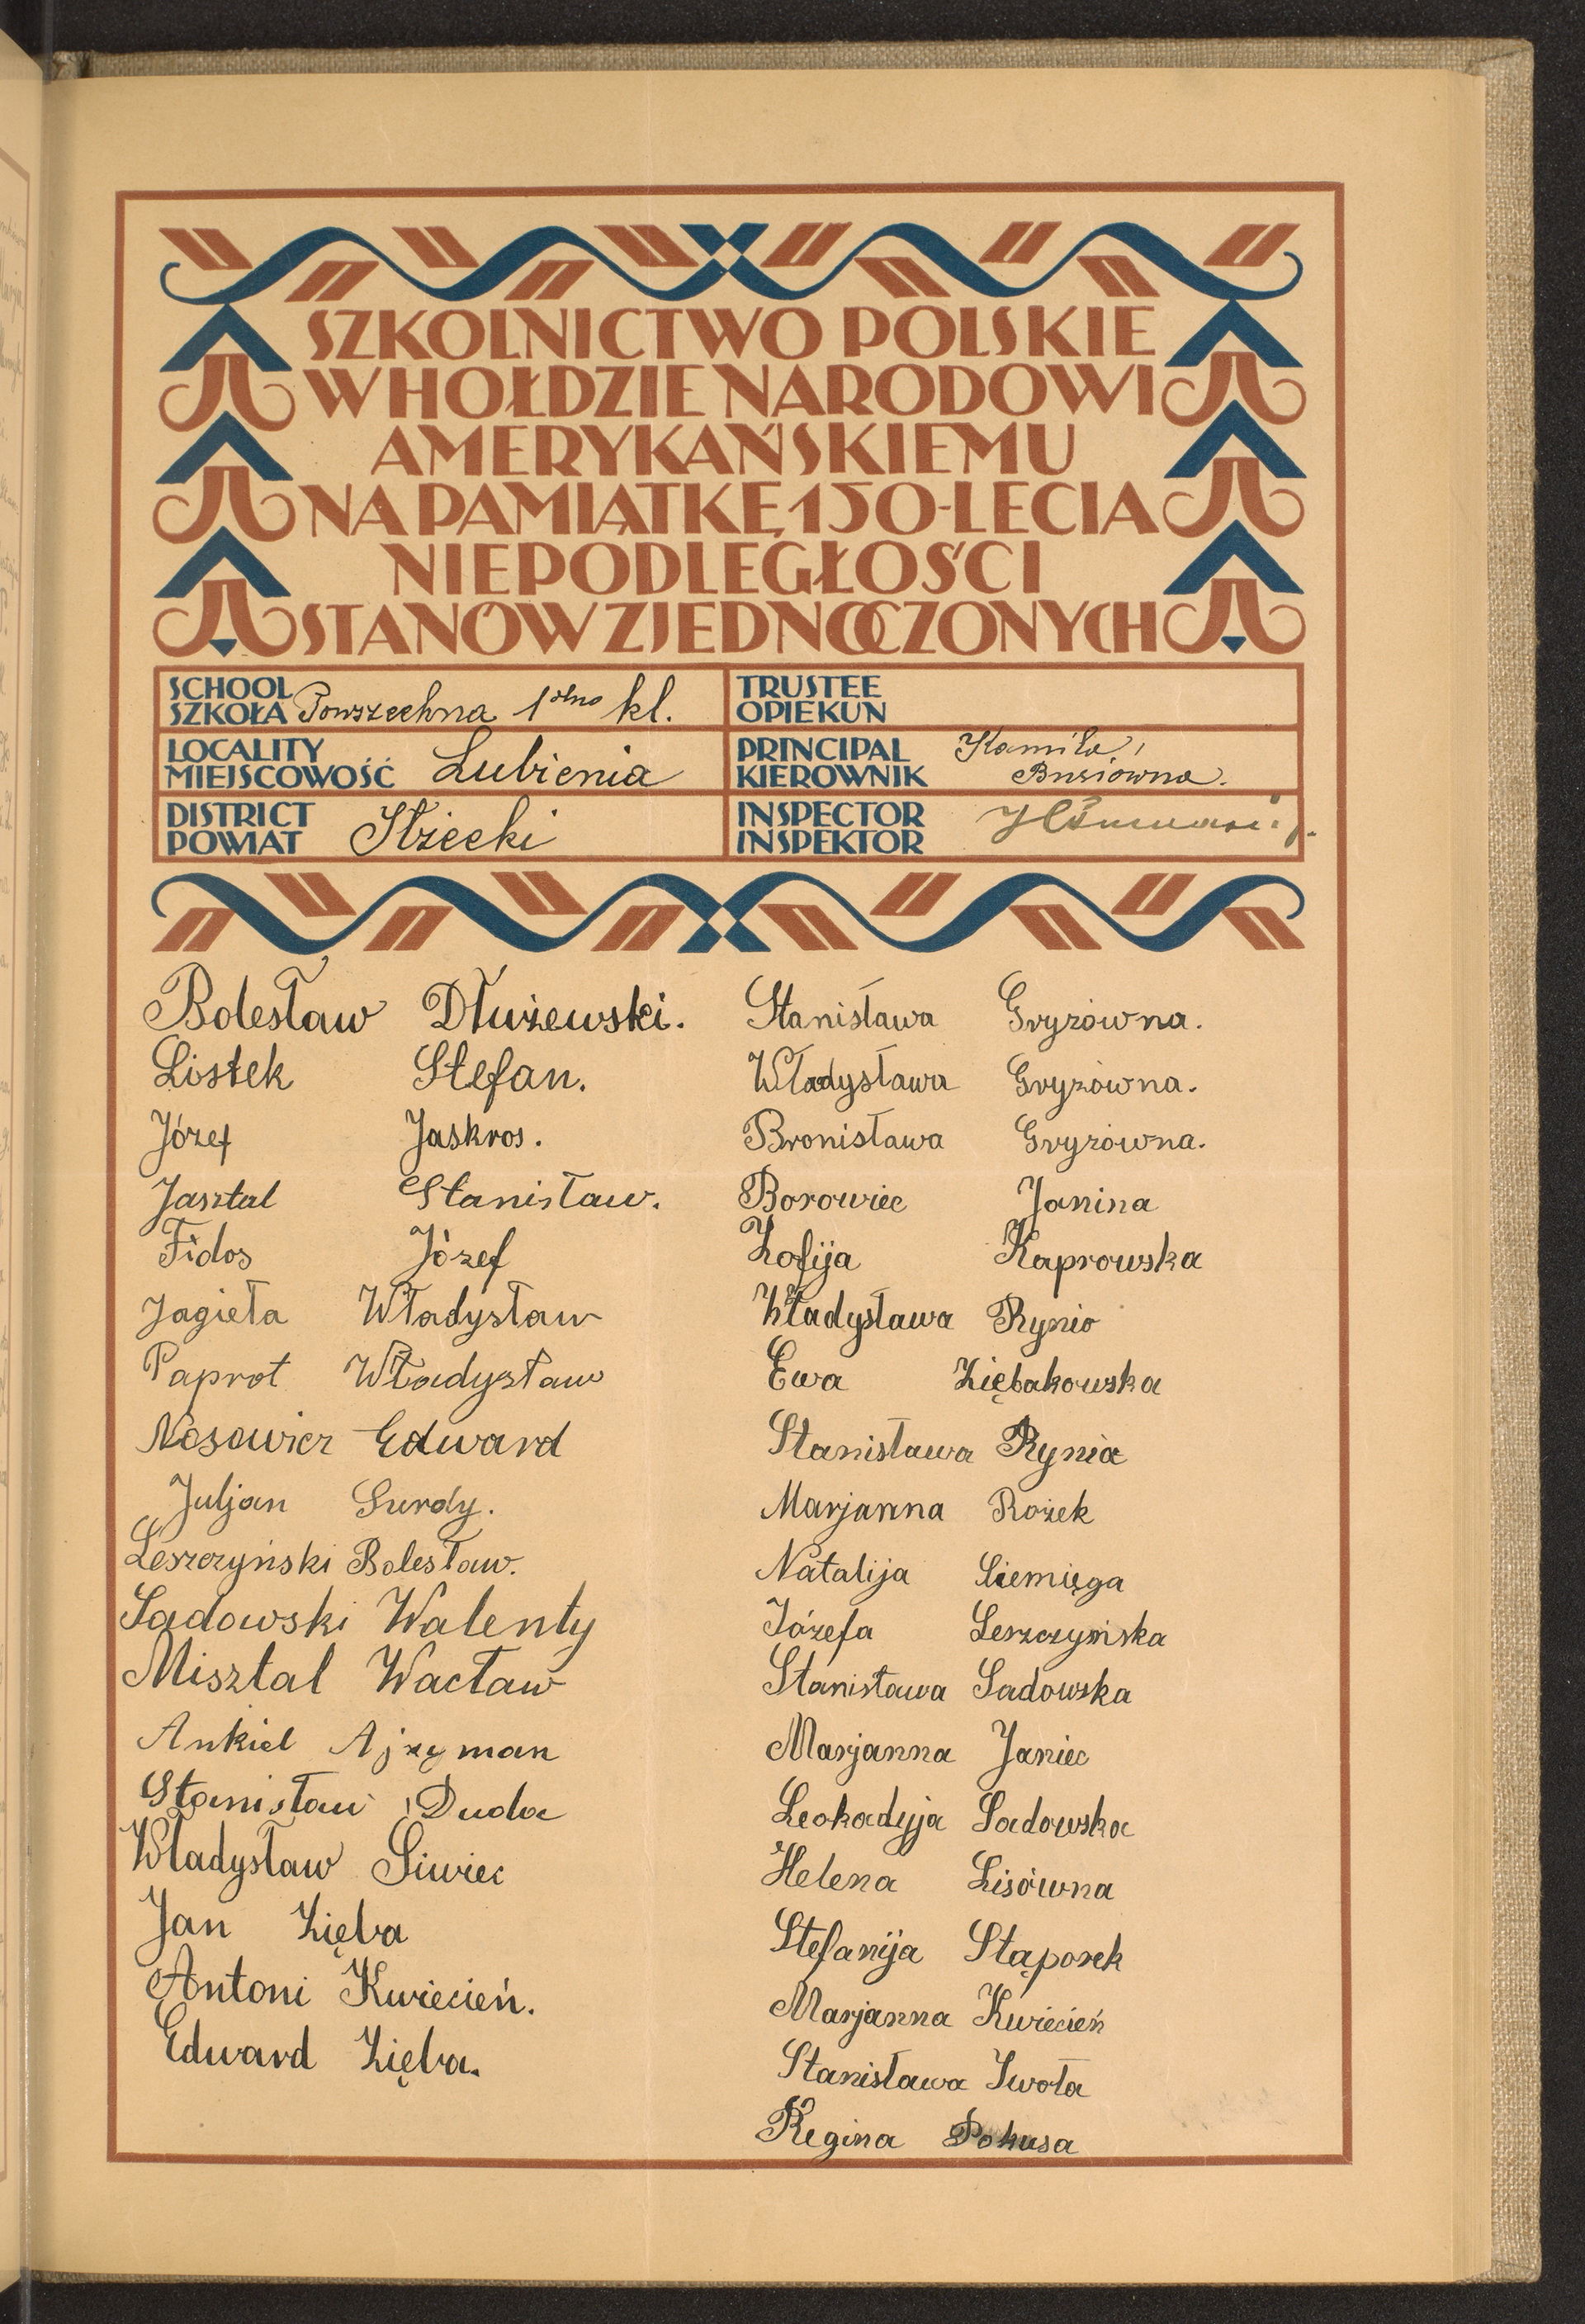 SZKOLNICTWO POLSKIE
W HOŁDZIE NARODOWI
AMERYKAŃSKIEMU
NA PAMIĄTKĘ 150-LECIA
NIEPODLEGŁOŚCI
STANÓW ZJEDNOCZONYCH
SCHOOL
SZKOŁA Powszechna 1dno kl.
TRUSTEE
OPIEKUN
LOCALITY
MIEJSCOWOŚĆ Lubienia
PRINCIPAL Kamila
KIEROWNIK
DISTRICT
POWIAT Iłżecki
INSPECTOR
INSPEKTOR
Bolesław Dłużewski.
Listek Stefan.
Józef Jaskros.
Jasztal Stanisław.
Fidos Józef
Jagieła Władysław
Paprot Władysław
Nosowicz Edward
Juljan Surdy.
Leszczyński Bolesław.
Sadowski Walenty
Misztal Wacław
Ankiel Ajzyman
Stanisław Duda
Władysław Siwiec
Jan Zięba
Antoni Kwiecień.
Edward Zięba.
Stanisława Gryzówna.
Władysława Gryzówna.
Bronisława Gryzówna.
Borowiec Janina
Zofija Kaprowska
Władysława Rynio
Ewa Ziębakowska
Stanisława Rynia
Marjanna Rożek
Natalija Siemięga
Józefa Leszczyńska
Stanisława Sadowska
Marjanna Janiec
Leokadyja Sadowska
Helena Lisówna
Stefanija Stąporek
Marjanna Kwiecień
Stanisława Iwoła
Regina Pokusa